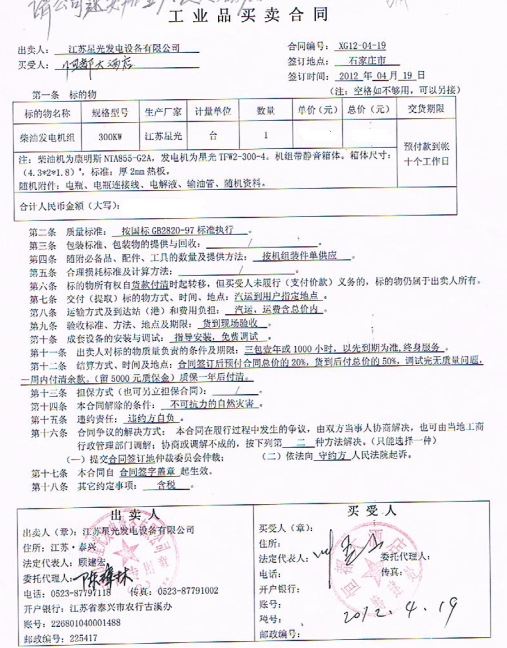 工业品买卖合同
出卖人：江苏星光发电设备有限公司 合同编号：XG12-04-19
买受人： 签订地点：石家庄市
签订时间：2012 年 04 月 19 日
第一条 标的物 （注：空格如不够用，可以另接）
标的物名称 规格型号 生产厂家 计量单位 数量 单价（元） 总价（元） 交货期限
柴油发电机组 300KW 江苏星光 台 1 预付款到帐十个工作日
注：柴油机为康明斯 NTA855-G2A，发电机为星光 TFW2-300-4。机组带静音箱体。箱体尺寸：
（4.3*2*1.8），标准：厚 2mm 热板。
随机附件：电瓶、电瓶连接线、电解液、输油管、随机资料。
合计人民币金额（大写）：
第二条 质量标准：按国标 GB2820-97 标准执行。
第三条 包装标准、包装物的提供与回收： / 。
第四条 随附必备品、配件、工具的数量及提供方法：按机组装件单供应
第五条 合理损耗标准及计算方法： / 。
第六条 标的物所有权自货款付清时起转移，但买受人未履行（支付价款）义务的，标的物仍属于出卖人所有。
第七条 交付（提取）标的物方式、时间、地点：汽运到用户指定地点。
第八条 运输方式及到达站（港）和费用负担：汽运，运费含总价内
第九条 验收标准、方法、地点及期限：货到现场验收。
第十条 成套设备的安装与调试：指导安装，免费调试。
第十一条 出卖人对标的物质量负责的条件及期限：三包壹年或 1000 小时，以先到期为准，终身服务。
第十二条 结算方式、时间及地点：合同签订后预付合同总价的 20%，货到后付总价的 50%，调试完无质量问题，
一周内付清余款。（留 5000 元质保金）质保一年后付清。
第十三条 担保方式（也可另立担保合同）： /
第十四条 本合同解除的条件：不可抗力的自然灾害。
第十五条 违约责任：违约方自负。
第十六条 合同争议的解决方式：本合同在履行过程中发生的争议，由双方当事人协商解决，也可由当地工商
行政管理部门调解；协商或调解不成的，按下列第 二 种方法解决。（只能选择一种）
（一）提交合同签订地仲裁委员会仲裁； （二）依法向 守约方 人民法院起诉。
第十七条 本合同自 合同签字盖章 起生效。
第十八条 其它约定事项： 含税 。
出卖人
出卖人（章）：江苏星光发电设备有限公司
住所：江苏·泰兴
法定代表人：顾建宏
委托代理人：
电话：0523-87797118 传真：0523-87791002
开户银行：江苏省泰兴市农行古溪办
账号：226801040001488
邮政编号：225417
买受人
买受人（章）：
住所：
法定代表人： 委托代理人：
电话： 传真：
开户银行：
账号：
税号： 2012.4.19
邮政编号：